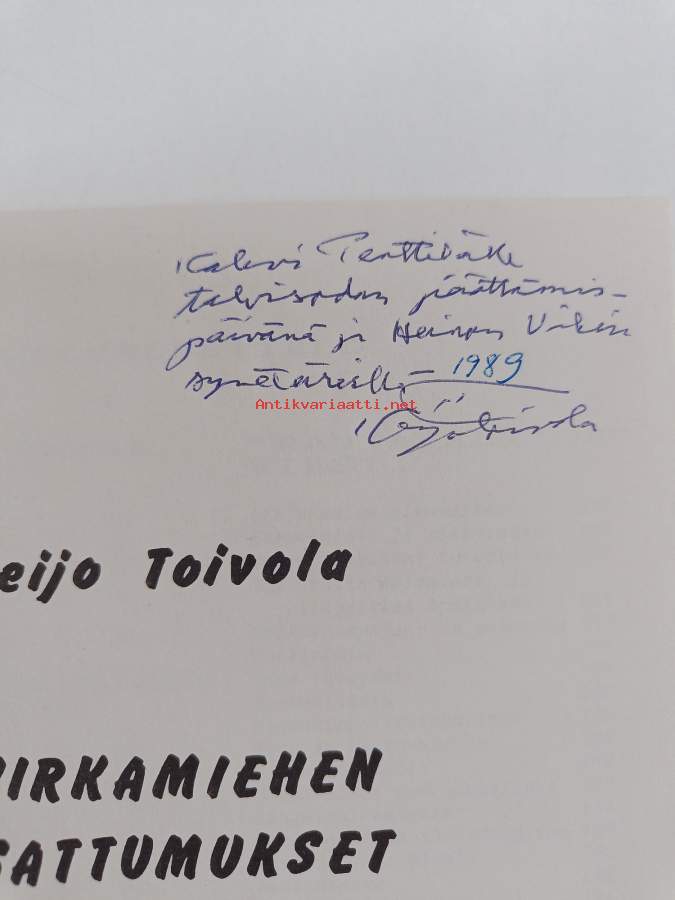 Kalevi Penttilälle
talvisodan päättämis-
päivänä ja Heinon Vikin
1989
Antikvariaatti.net
eijo Toivola
VIRKAMIEHEN
SATTUMUKSET